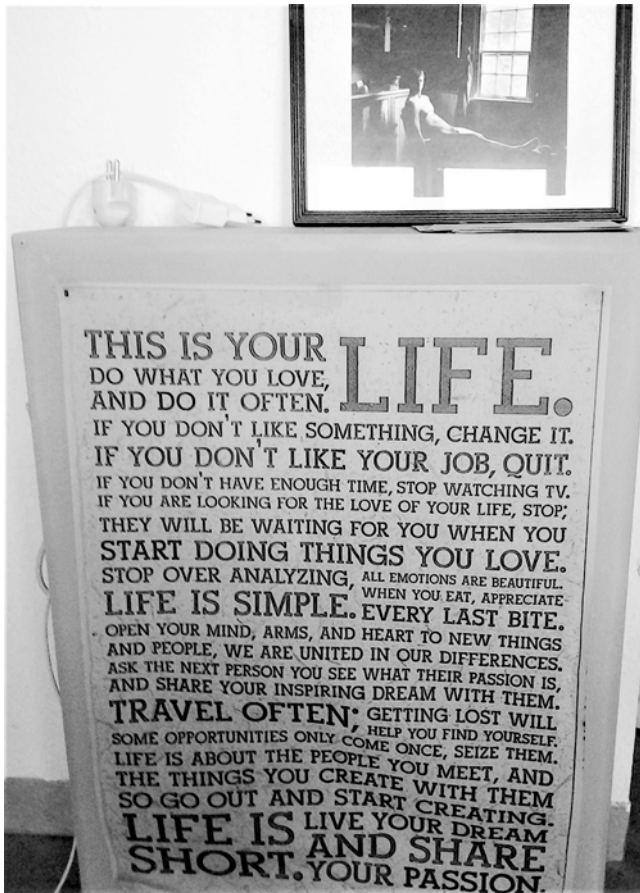 THIS IS YOUR LIFE.
DO WHAT YOU LOVE,
AND DO IT OFTEN.
IF YOU DON'T LIKE SOMETHING, CHANGE IT.
IF YOU DON'T LIKE YOUR JOB, QUIT.
IF YOU DON'T HAVE ENOUGH TIME, STOP WATCHING TV.
IF YOU ARE LOOKING FOR THE LOVE OF YOUR LIFE, STOP;
THEY WILL BE WAITING FOR YOU WHEN YOU
START DOING THINGS YOU LOVE.
STOP OVER ANALYZING,
LIFE IS SIMPLE.
ALL EMOTIONS ARE BEAUTIFUL.
WHEN YOU EAT, APPRECIATE
EVERY LAST BITE.
OPEN YOUR MIND, ARMS, AND HEART TO NEW THINGS
AND PEOPLE, WE ARE UNITED IN OUR DIFFERENCES.
ASK THE NEXT PERSON YOU SEE WHAT THEIR PASSION IS,
AND SHARE YOUR INSPIRING DREAM WITH THEM.
TRAVEL OFTEN;
GETTING LOST WILL
HELP YOU FIND YOURSELF.
SOME OPPORTUNITIES ONLY COME ONCE, SEIZE THEM.
LIFE IS ABOUT THE PEOPLE YOU MEET, AND
THE THINGS YOU CREATE WITH THEM
SO GO OUT AND START CREATING.
LIFE IS
SHORT.
LIVE YOUR DREAM
AND SHARE
YOUR PASSION